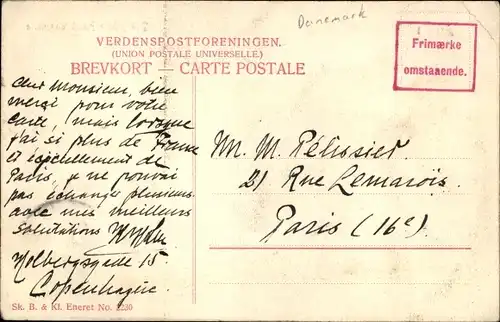 Danemark
VERDENSPOSTFORENINGEN.
(UNION POSTALE UNIVERSELLE.)
BREVKORT — CARTE POSTALE
Frimærke
omstaaende.
cher Monsieur, bien
merci pour votre
carte, mais lorsque
j'ai si plus de France
et de
Paris, je ne pouvai
pas échanger plusieurs
avec mes meilleurs
salutations
Holbergsgade 15
Copenhague.
Mr. M. Pélissier
21 Rue Lemarois.
Paris (16e)
Sk. B. & Kl. Eneret No. 2230